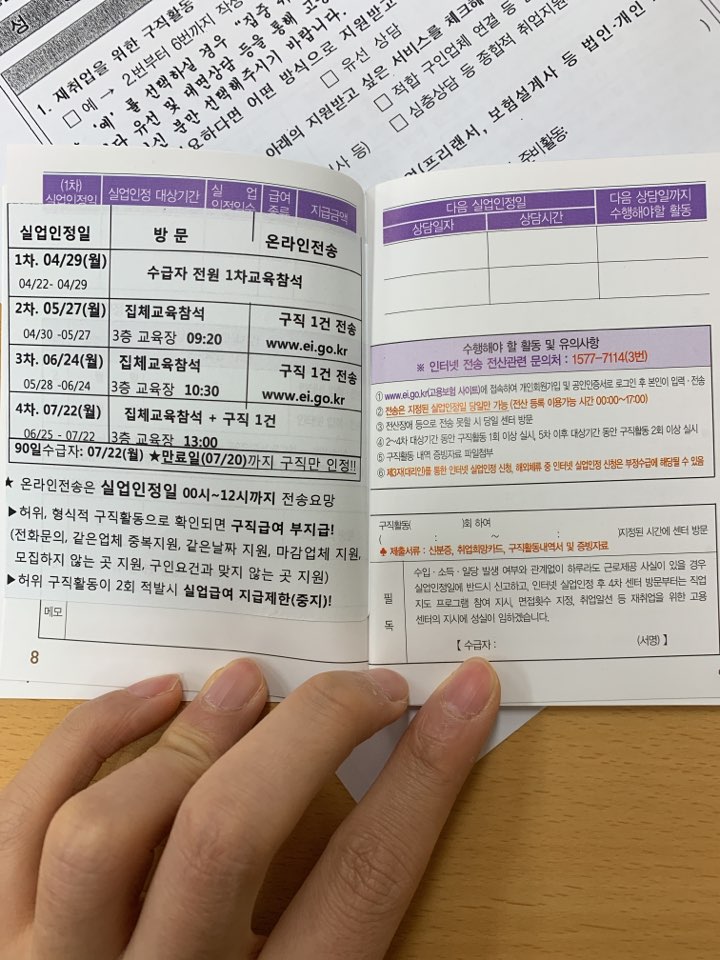 성
1. 재취업을 위한 구직활동
□ 예 → 2번부터 6번까지 작성
'예'를 선택하실 경우 "집중 취
유선 및 대면상담 등을 통해 고용
분만 선택해주시기 바랍니다.
요하다면 어떤 방식으로 지원받고
□ 유선 상담
아래의 지원받고 싶은 서비스를 체크해
□ 적합 구인업체 연결 등
□ 심층상담 등 종합적 취업지원
(프리랜서, 보험설계사 등 법인·개인
준비활동
(1차)
실업인정일
실업인정 대상기간
실 업
인정일수
급여
종류
지급금액
실업인정일
방 문
온라인전송
1차. 04/29(월)
04/22- 04/29
수급자 전원 1차교육참석
2차. 05/27(월)
04/30 -05/27
집체교육참석
3층 교육장 09:20
구직 1건 전송
www.ei.go.kr
3차. 06/24(월)
05/28 -06/24
집체교육참석
3층 교육장 10:30
구직 1건 전송
www.ei.go.kr
4차. 07/22(월)
06/25 - 07/22
집체교육참석 + 구직 1건
3층 교육장 13:00
90일수급자: 07/22(월) ★만료일(07/20)까지 구직만 인정!!
★ 온라인전송은 실업인정일 00시~12시까지 전송요망
▶허위, 형식적 구직활동으로 확인되면 구직급여 부지급!
(전화문의, 같은업체 중복지원, 같은날짜 지원, 마감업체 지원,
모집하지 않는 곳 지원, 구인요건과 맞지 않는 곳 지원)
▶허위 구직활동이 2회 적발시 실업급여 지급제한(중지)!
메모
8
다음 실업인정일
상담일자
상담시간
다음 상담일까지
수행해야할 활동
수행해야 할 활동 및 유의사항
※ 인터넷 전송 전산관련 문의처 : 1577-7114(3번)
① www.ei.go.kr(고용보험 사이트)에 접속하여 개인회원가입 및 공인인증서로 로그인 후 본인이 입력·전송
② 전송은 지정된 실업인정일 당일만 가능 (전산 등록 이용가능 시간 00:00~17:00)
③ 전산장애 등으로 전송 못할 시 당일 센터 방문
④ 2~4차 대상기간 동안 구직활동 1회 이상 실시, 5차 이후 대상기간 동안 구직활동 2회 이상 실시
⑤ 구직활동 내역 증빙자료 파일첨부
⑥ 제3자(대리인)를 통한 인터넷 실업인정 신청, 해외체류 중 인터넷 실업인정 신청은 부정수급에 해당될 수 있음
구직활동( )회 하여
( : ~ : )지정된 시간에 센터 방문
♣ 제출서류 : 신분증, 취업희망카드, 구직활동내역서 및 증빙자료
필
독
수입·소득·일당 발생 여부와 관계없이 하루라도 근로제공 사실이 있을 경우
실업인정일에 반드시 신고하고, 인터넷 실업인정 후 4차 센터 방문부터는 직업
지도 프로그램 참여 지시, 면접횟수 지정, 취업알선 등 재취업을 위한 고용
센터의 지시에 성실이 임하겠습니다.
【 수급자 : (서명) 】